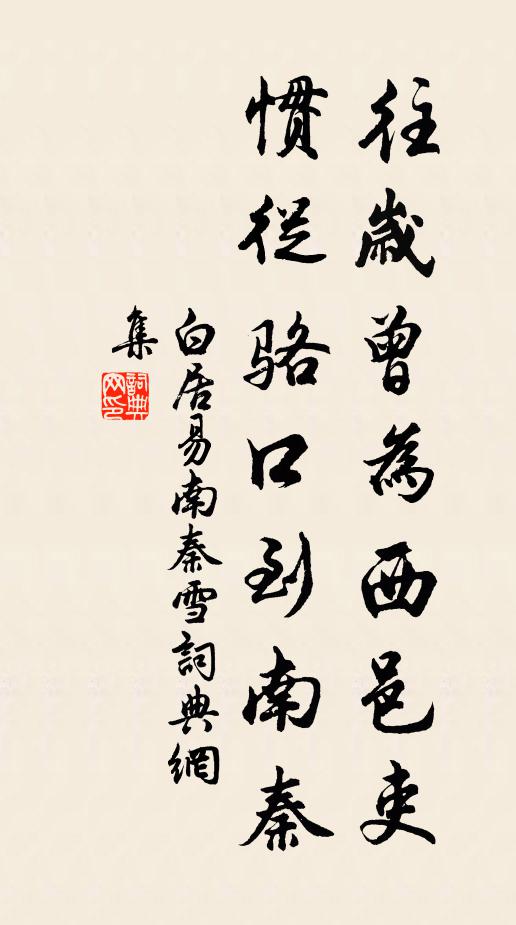 往歲曾為西邑吏
慣從骆口到南秦
白居易南秦雪詞典網
集
詞典
网印